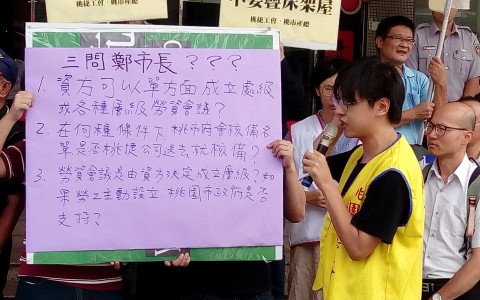 桃捷工會、桃市產總
不要疊床架屋
桃捷工會、桃市產總
三問鄭市長???
1. 資方可以單方面成立處級
或各種層級勞資會議?
2. 在何種條件下桃市府會核備名
單是否桃捷公司送去就核備?
3. 勞資會議是由資方決定成立層級?如
果勞工主動設立.桃園市政府是否
支持?